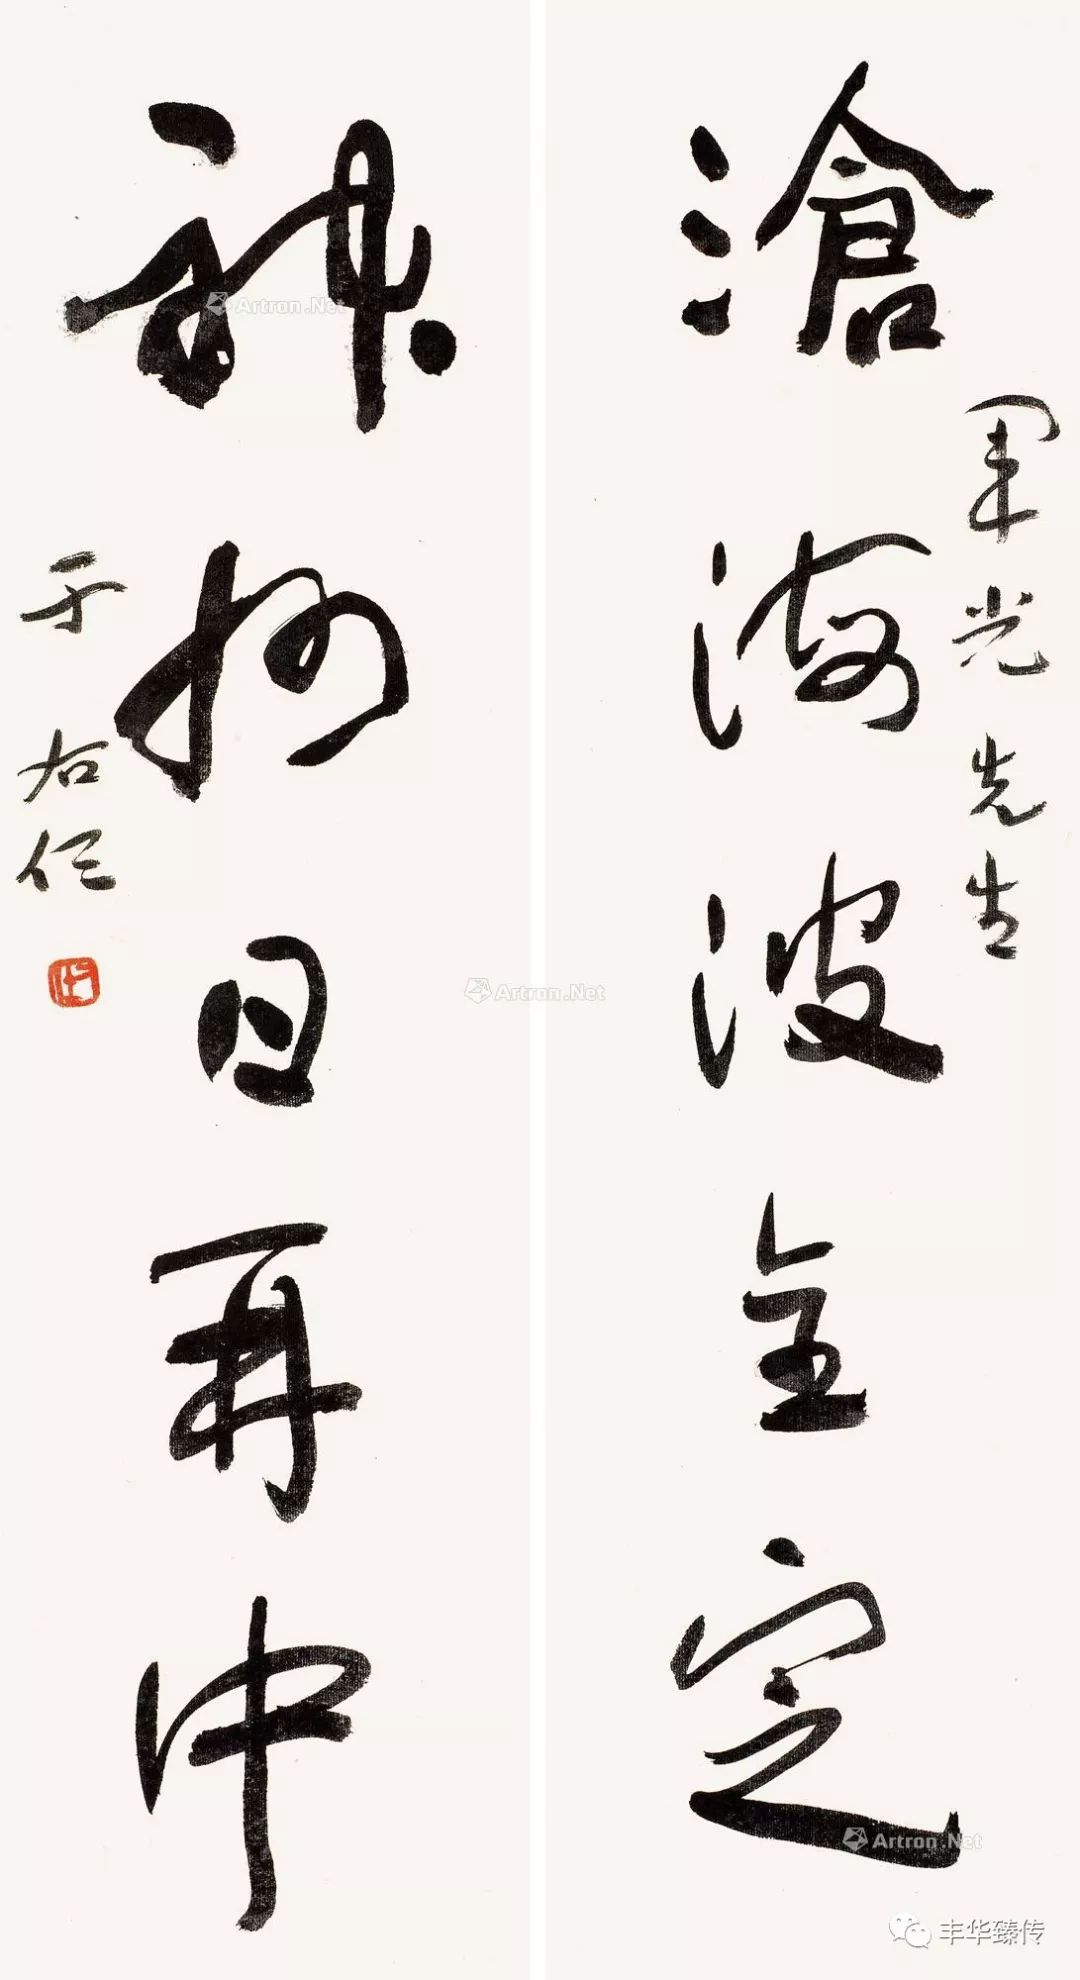 滄海波全定
軍光先生
神州日再中
于右任
Artron.Net
Artron.Net
Artron.Net
丰华臻传